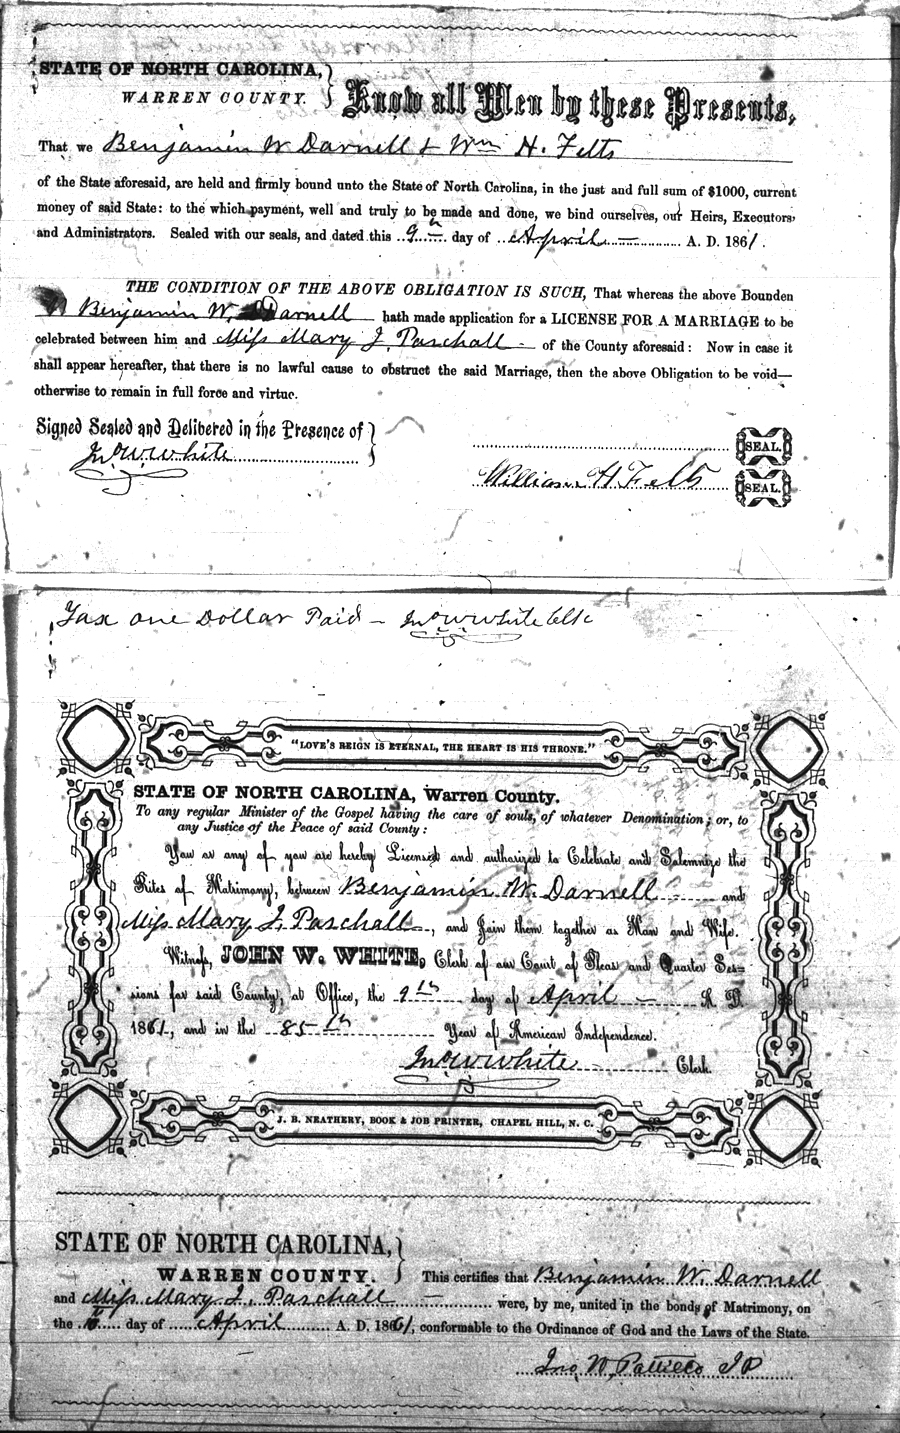 STATE OF NORTH CAROLINA,
WARREN COUNTY.
Know all Men by these Presents,
That we Benjamin W Darnell & Wm H. Felts
of the State aforesaid, are held and firmly bound unto the State of North Carolina, in the just and full sum of $1000, current
money of said State: to the which payment, well and truly to be made and done, we bind ourselves, our Heirs, Executors,
and Administrators. Sealed with our seals, and dated this 9th day of April A. D. 1861.
THE CONDITION OF THE ABOVE OBLIGATION IS SUCH, That whereas the above Bounden
Benjamin W. Darnell hath made application for a LICENSE FOR A MARRIAGE to be
celebrated between him and Miss Mary J. Paschall of the County aforesaid: Now in case it
shall appear hereafter, that there is no lawful cause to obstruct the said Marriage, then the above Obligation to be void—
otherwise to remain in full force and virtue.
Signed Sealed and Delibered in the Presence of
SEAL.
Jno W. White
William H. Felts SEAL.
Tax one Dollar Paid – Jno W White Clk
"LOVE'S REIGN IS ETERNAL, THE HEART IS HIS THRONE."
STATE OF NORTH CAROLINA, Warren County.
To any regular Minister of the Gospel having the care of souls, of whatever Denomination; or, to
any Justice of the Peace of said County:
You or any of you are hereby Licensed and authorized to Celebrate and Solemnize the
Rites of Matrimony, between Benjamin W. Darnell and
Miss Mary J. Paschall, and Join them together as Man and Wife.
Witness, JOHN W. WHITE, Clerk of our Court of Pleas and Quarter Ses-
sions for said County, at Office, the 9th day of April A. D.
1861, and in the 85th Year of American Independence.
Jno W White Clerk.
J. B. NEATHERY, BOOK & JOB PRINTER, CHAPEL HILL, N. C.
STATE OF NORTH CAROLINA,
WARREN COUNTY.
This certifies that Benjamin W. Darnell
and Miss Mary J. Paschall were, by me, united in the bonds of Matrimony, on
the day of April A. D. 1861, conformable to the Ordinance of God and the Laws of the State.
Jno. W. Pattillo JP